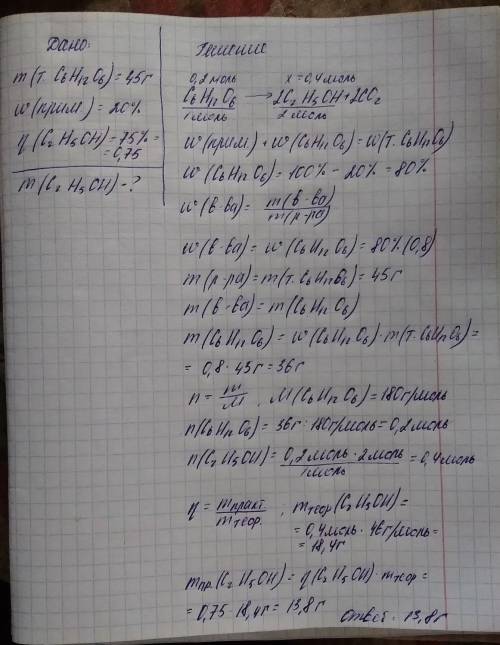 Дано:
m(т. C6H12O6)=45г
w(прим.)=20%
η(C2H5OH)=75%=
=0,75
m(C2H5OH)-?
Решение
0,2моль x=0,4моль
C6H12O6 → 2C2H5OH+2CO2
1моль 2моль
w(прим.)+w(C6H12O6)=w(т.C6H12O6)
w(C6H12O6)=100%-20%=80%
w(в-ва)=m(в-ва)/m(р-ра)
w(в-ва)=w(C6H12O6)=80%(0,8)
m(р-ра)=m(т.C6H12O6)=45г
m(в-ва)=m(C6H12O6)
m(C6H12O6)=w(C6H12O6)·m(т.C6H12O6)=
=0,8·45г=36г
n=m/M, M(C6H12O6)=180г/моль
n(C6H12O6)=36г:180г/моль=0,2моль
n(C2H5OH)=0,2моль·2моль/1моль=0,4моль
η=mпракт/mтеор.; mтеор(C2H5OH)=
=0,4моль·46г/моль=
=18,4г
mпр.(C2H5OH)=η(C2H5OH)·mтеор=
=0,75·18,4г=13,8г Ответ: 13,8г